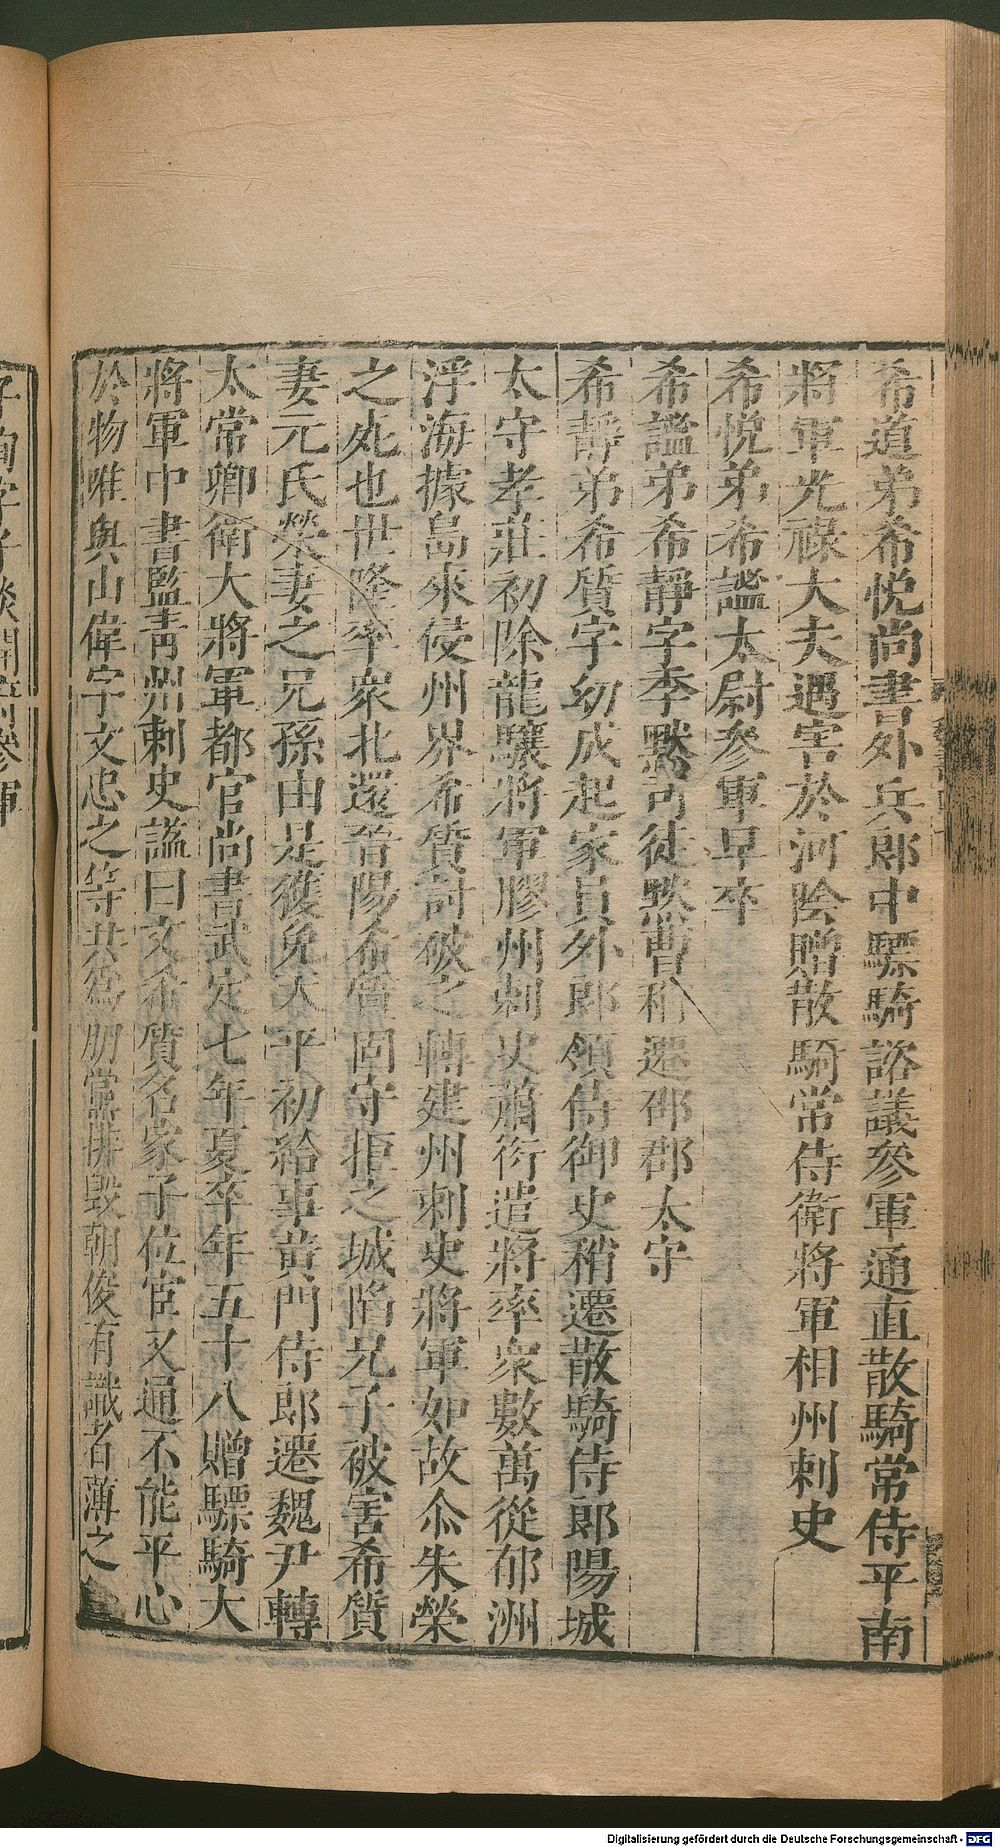 希道弟希悅尚書外兵郎中驃騎諮議參軍通直散騎常侍平南
將軍光祿大夫遇害於河陰贈散騎常侍衛將軍相州刺史
希悅弟希謐太尉參軍早卒
希謐弟希靜字季默司徒默曹稍遷邵郡太守
希靜弟希質字幼成起家員外郎領侍御史稍遷散騎侍郎陽城
太守孝莊初除龍驤將軍膠州刺史蕭衍遣將率衆數萬從郁洲
浮海據島來侵州界希質討破之轉建州刺史將軍如故尒朱榮
之死也世隆率衆北還晉陽希質固守拒之城陷兄子被害希質
妻元氏榮妻之兄孫由是獲免天平初給事黃門侍郎遷魏尹轉
太常卿衛大將軍都官尚書武定七年夏卒年五十八贈驃騎大
將軍中書監青州刺史謚曰文希質名家子位宦又通不能平心
於物唯與山偉宇文忠之等共爲朋黨排毀朝俊有識者薄之
Digitalisierung gefördert durch die Deutsche Forschungsgemeinschaft - DFG